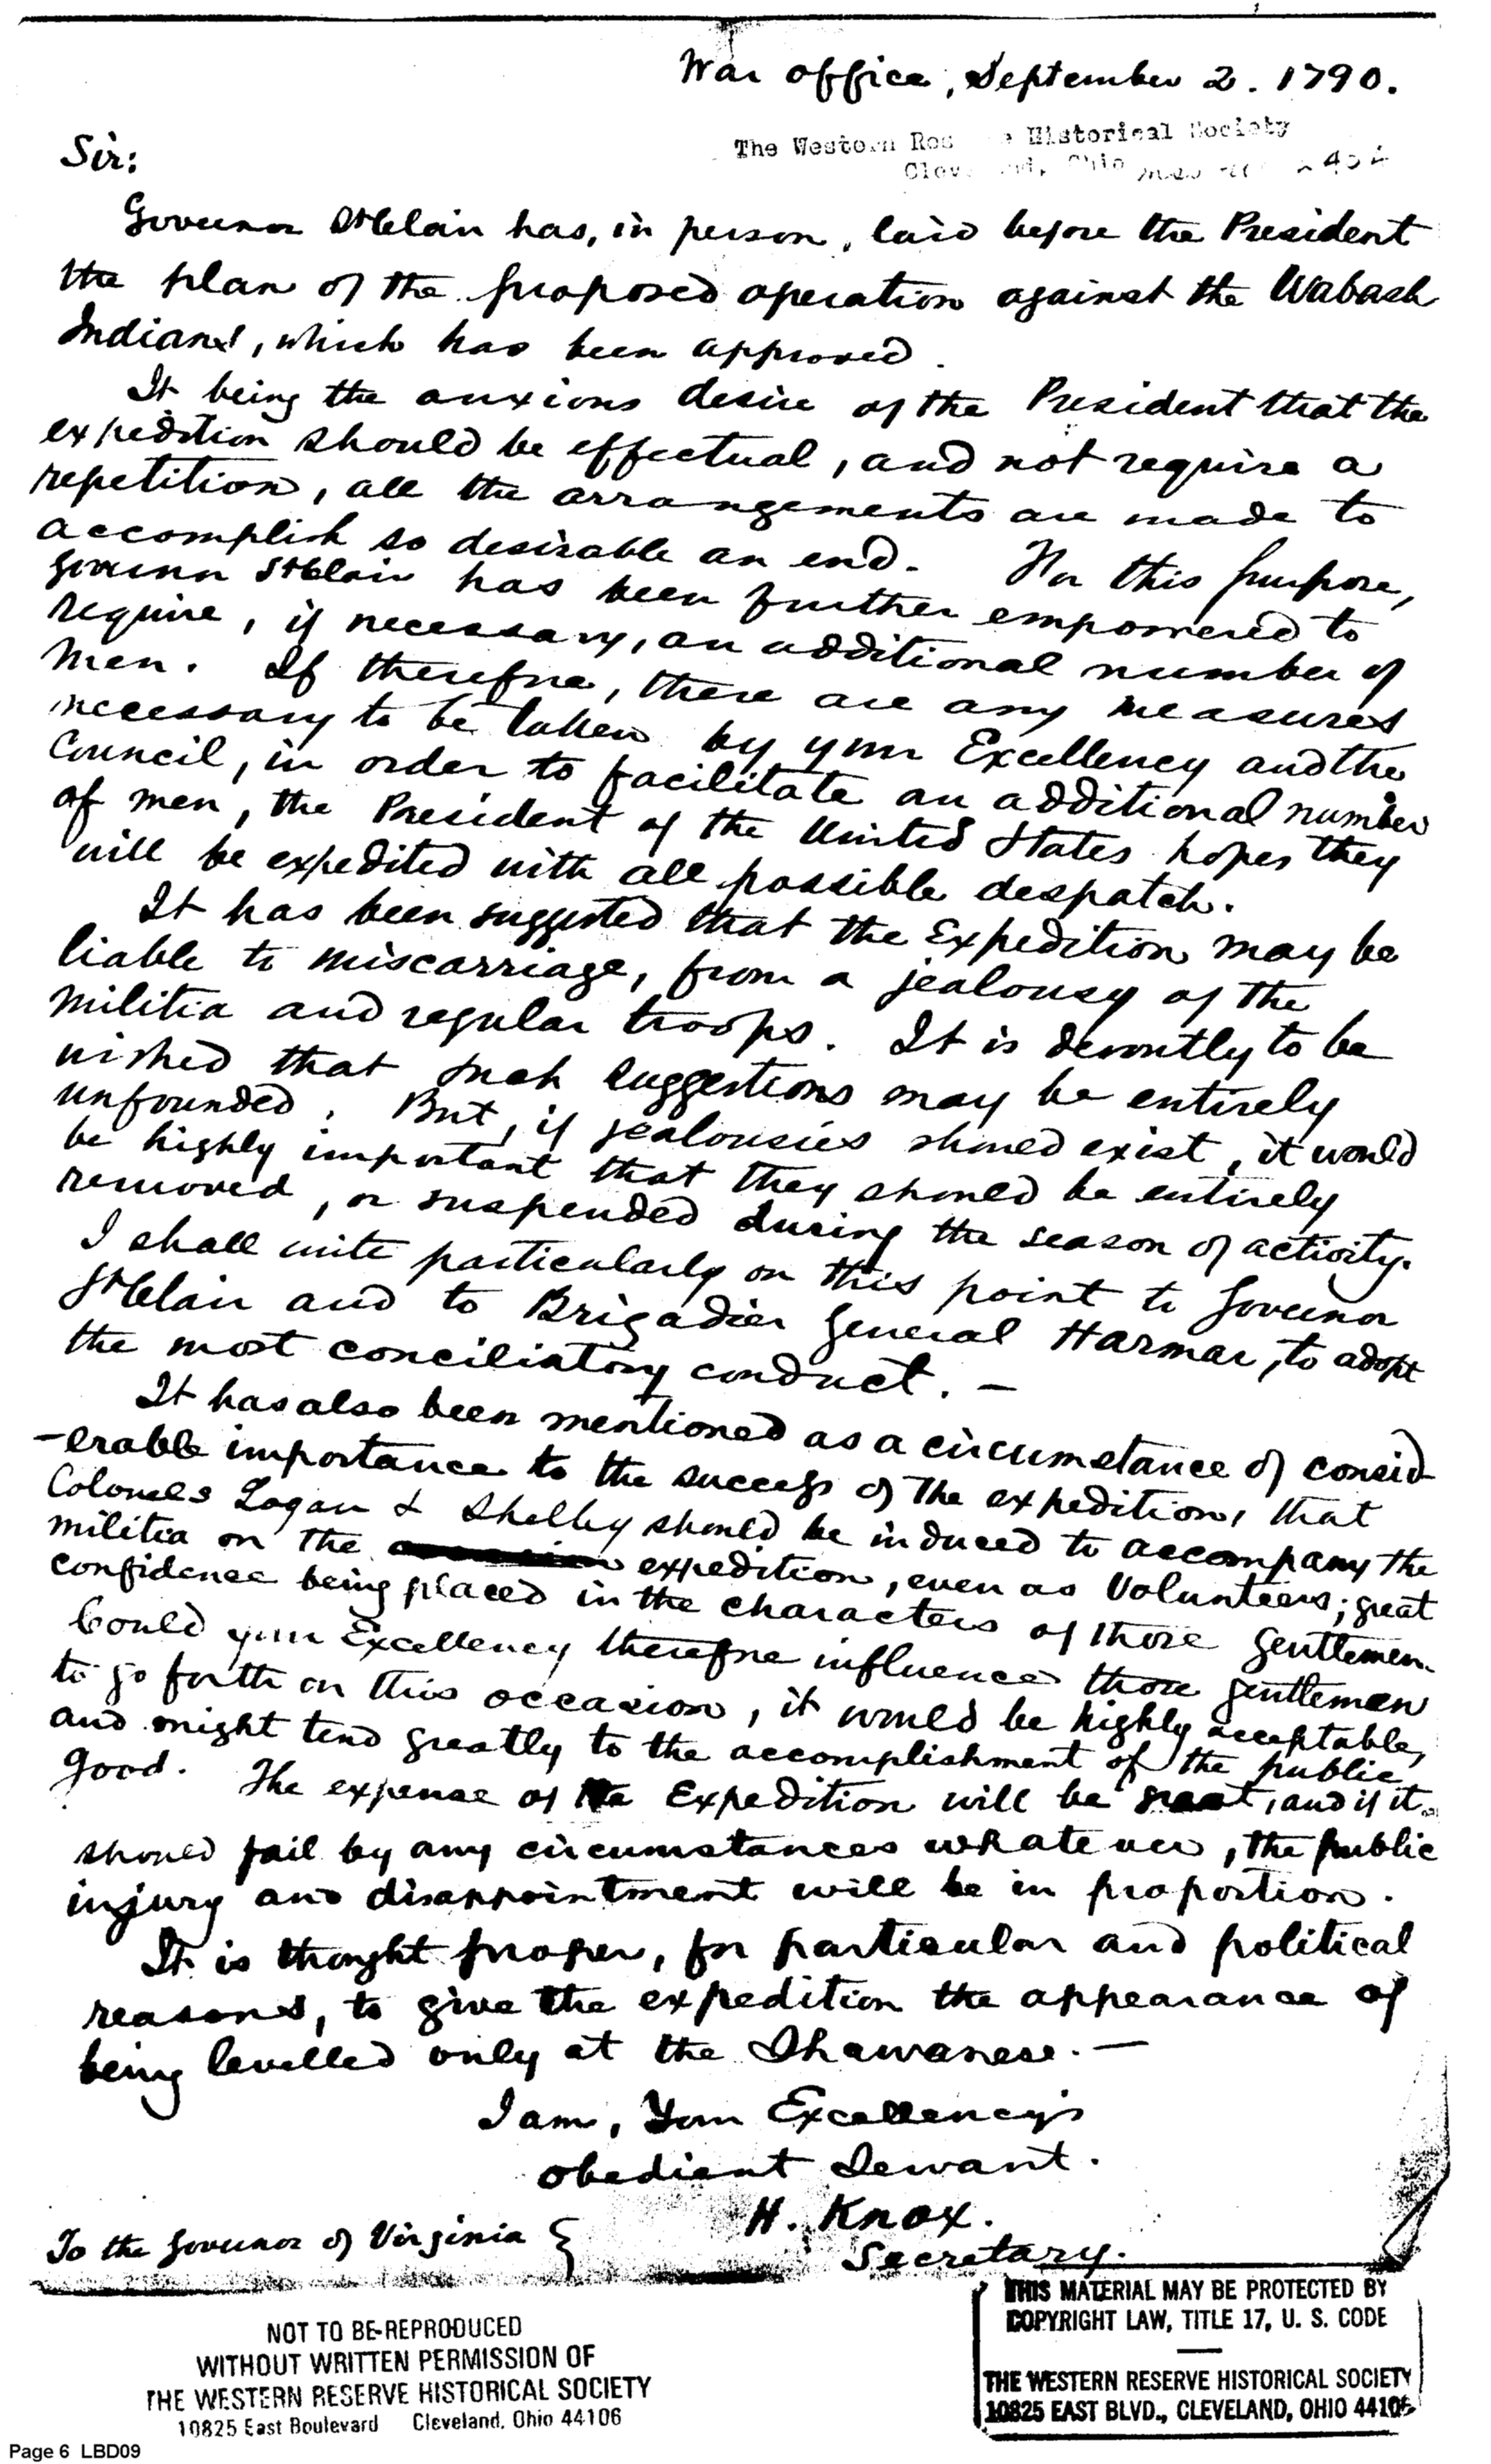 War office, September 2. 1790.
The Western Historical Society
Sir:
Governor St Clair has, in person, laid before the President
the plan of the proposed operation against the Wabash
Indians, which has been approved.
It being the anxious desire of the President that the
expedition should be effectual, and not require a
repetition, all the arrangements are made to
accomplish so desirable an end. For this purpose,
Governor St Clair has been further empowered to
require, if necessary, an additional number of
men. If therefore, there are any measures
necessary to be taken by your Excellency and the
Council, in order to facilitate an additional number
of men, the President of the United States hopes they
will be expedited with all possible despatch.
It has been suggested that the Expedition may be
liable to miscarriage, from a jealousy of the
militia and regular troops. It is devoutly to be
wished that such suggestions may be entirely
unfounded. But, if jealousies should exist, it would
be highly important that they should be entirely
removed, or suspended during the season of activity.
I shall write particularly on this point to Governor
St Clair and to Brigadier General Harmar, to adopt
the most conciliatory conduct. —
It has also been mentioned as a circumstance of consid
-erable importance to the success of the expedition, that
Colonels Logan & Shelby should be induced to accompany the
militia on the expedition, even as Volunteers; great
confidence being placed in the characters of those gentlemen.
Could your Excellency therefore influence those gentlemen
to go forth on this occasion, it would be highly acceptable,
and might tend greatly to the accomplishment of the public
good. The expense of the Expedition will be great, and if it
should fail by any circumstances whatever, the public
injury and disappointment will be in proportion.
It is thought proper, for particular and political
reasons, to give the expedition the appearance of
being levelled only at the Shawanese. —
I am, Your Excellency's
obedient Servant.
H. Knox.
Secretary.
To the Governor of Virginia }
NOT TO BE REPRODUCED
WITHOUT WRITTEN PERMISSION OF
THE WESTERN RESERVE HISTORICAL SOCIETY
10825 East Boulevard Cleveland, Ohio 44106
THIS MATERIAL MAY BE PROTECTED BY
COPYRIGHT LAW, TITLE 17, U. S. CODE
—
THE WESTERN RESERVE HISTORICAL SOCIETY
10825 EAST BLVD., CLEVELAND, OHIO 44106
Page 6 LBD09